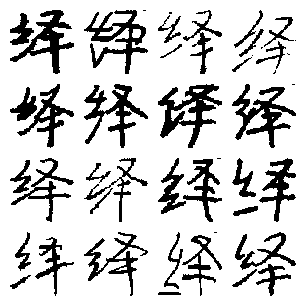 绎绎绎绎
绎绎绎绎
绎绎绎绎
绎绎绎绎